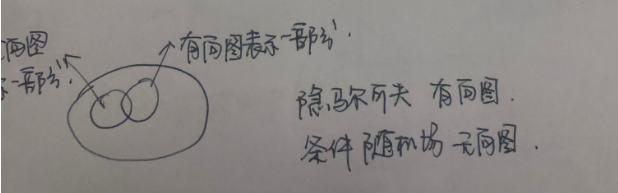 向图
一部分.
有向图表示一部分.
隐马尔可夫 有向图.
条件随机场 无向图.